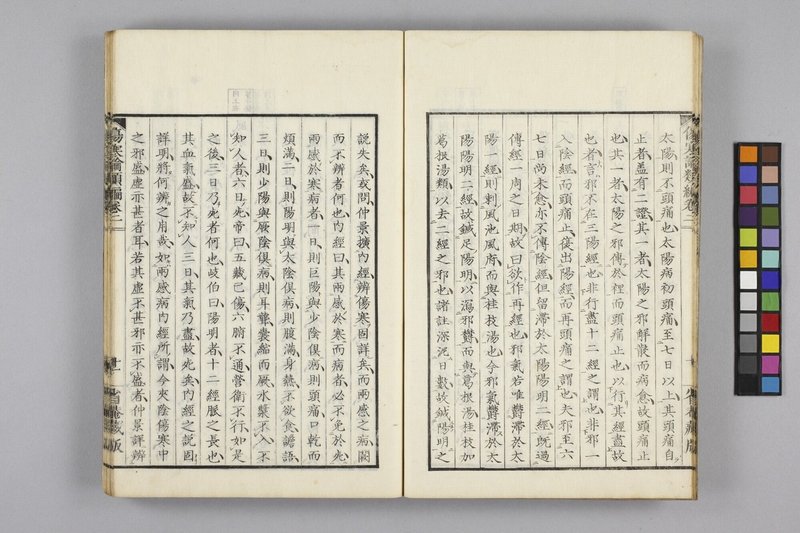 太陽則不頭痛也太陽病初頭痛至七日以上其頭痛自
止者蓋有二證其一者太陽之邪解散而病愈故頭痛止
也其一者太陽之邪傳於裡而頭痛止也以行其經盡故
也者言邪不在三陽經也非行盡十二經之謂也非邪一
入陰經而頭痛止復出陽經而再頭痛之謂也夫邪至六
七日尚未愈亦不傳陰經但留滯於太陽陽明二經既過
傳經一周之日期故曰欲作再經也邪氣若唯鬱滯於太
陽一經則刺風池風府而與桂枝湯也今邪氣鬱滯於太
陽陽明二經故鍼足陽明以瀉邪鬱而與葛根湯桂枝加
葛根湯類以去二經之邪也諸註深泥日數故鍼陽明之
說失矣或問仲景據內經辨傷寒固詳矣而兩感之病闕
而不辨者何也內經曰其兩感於寒而病者必不免於死
兩感於寒病者一日則巨陽與少陰俱病則頭痛口乾而
煩滿二日則陽明與太陰俱病則腹滿身熱不欲食譫語
三日則少陽與厥陰俱病則耳聾囊縮而厥水漿不入不
知人者六日死帝曰五藏已傷六腑不通營衛不行如是
之後三日乃死者何也岐伯曰陽明者十二經脈之長也
其血氣盛故不知人三日其氣乃盡故死矣內經之說固
詳明將何辨之用哉如兩感病內經所謂今夾陰傷寒中
之邪盛虛亦甚者耳若其虛不甚邪亦不盛者仲景詳辨
傷寒論類編卷二
十一